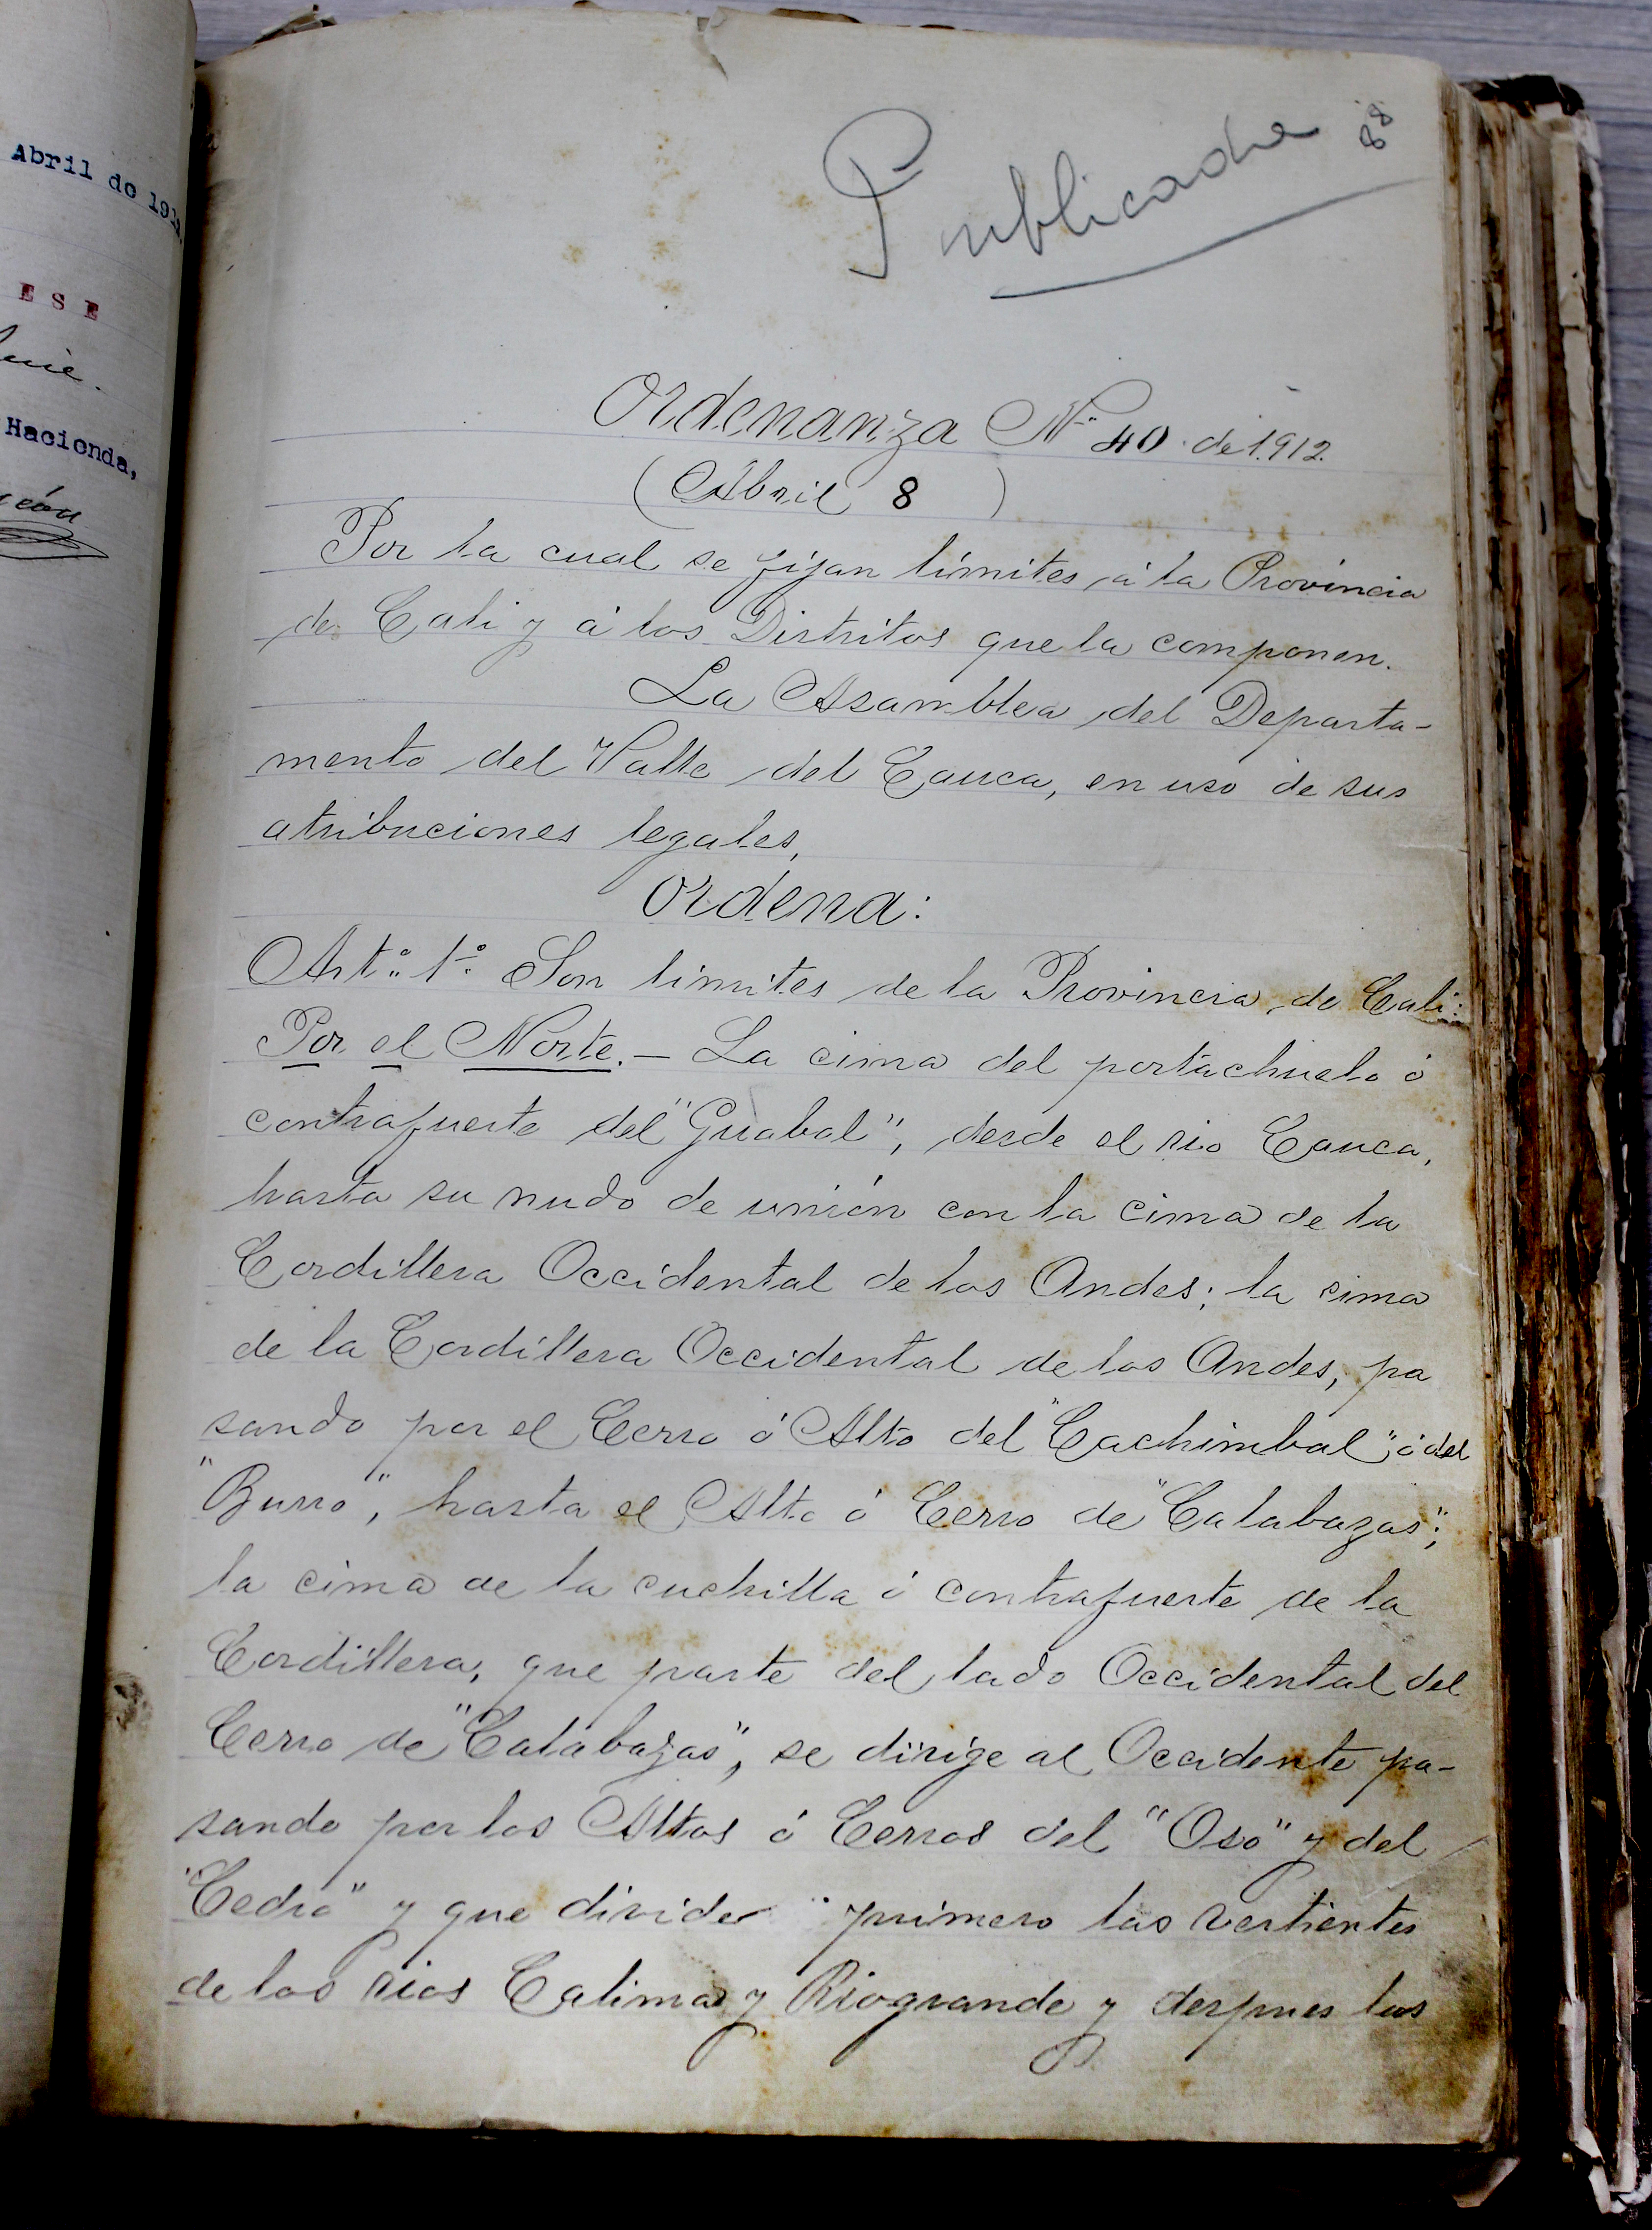 Abril de 191
E S E
Hacienda,
Publicada
88
Ordenanza Nº 40 de 1.912.
(Abril 8 )
Por la cual se fijan límites á la Provincia
de Cali y á los Distritos que la componen.
La Asamblea del Departa-
mento del Valle del Cauca, en uso de sus
atribuciones legales,
Ordena:
Artº 1º Son límites de la Provincia de Cali:
Por el Norte.— La cima del portachuelo ó
contrafuerte del "Guabal", desde el rio Cauca,
hasta su nudo de unión con la cima de la
Cordillera Occidental de los Andes; la cima
de la Cordillera Occidental de los Andes, pa
sando por el Cerro ó Alto del "Cachimbal" ó del
"Burro", hasta el Alto ó Cerro de "Calabazas";
la cima de la cuchilla ó contrafuerte de la
Cordillera, que parte del lado Occidental del
Cerro de "Calabazas", se dirige al Occidente pa-
sando por los Altos ó Cerros del "Oso" y del
"Cedro" y que divide primero las vertientes
de los rios Calima y Riogrande y despues las